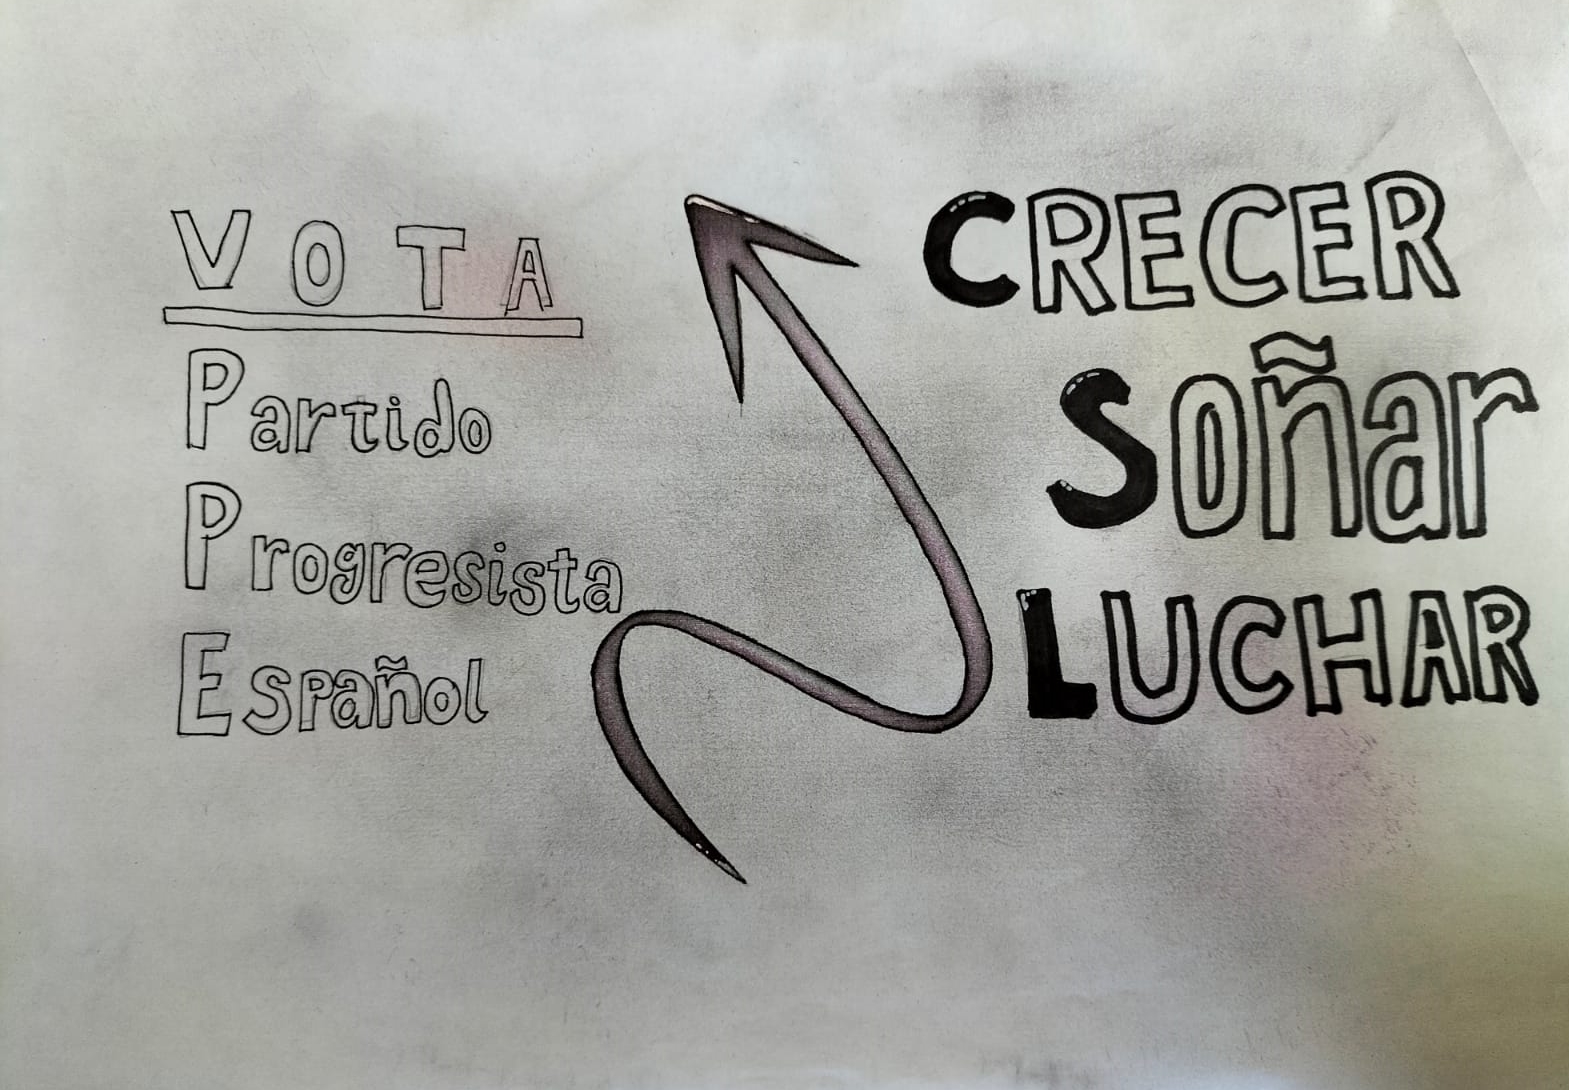 VOTA
Partido
Progresista
Español
CRECER
Soñar
LUCHAR